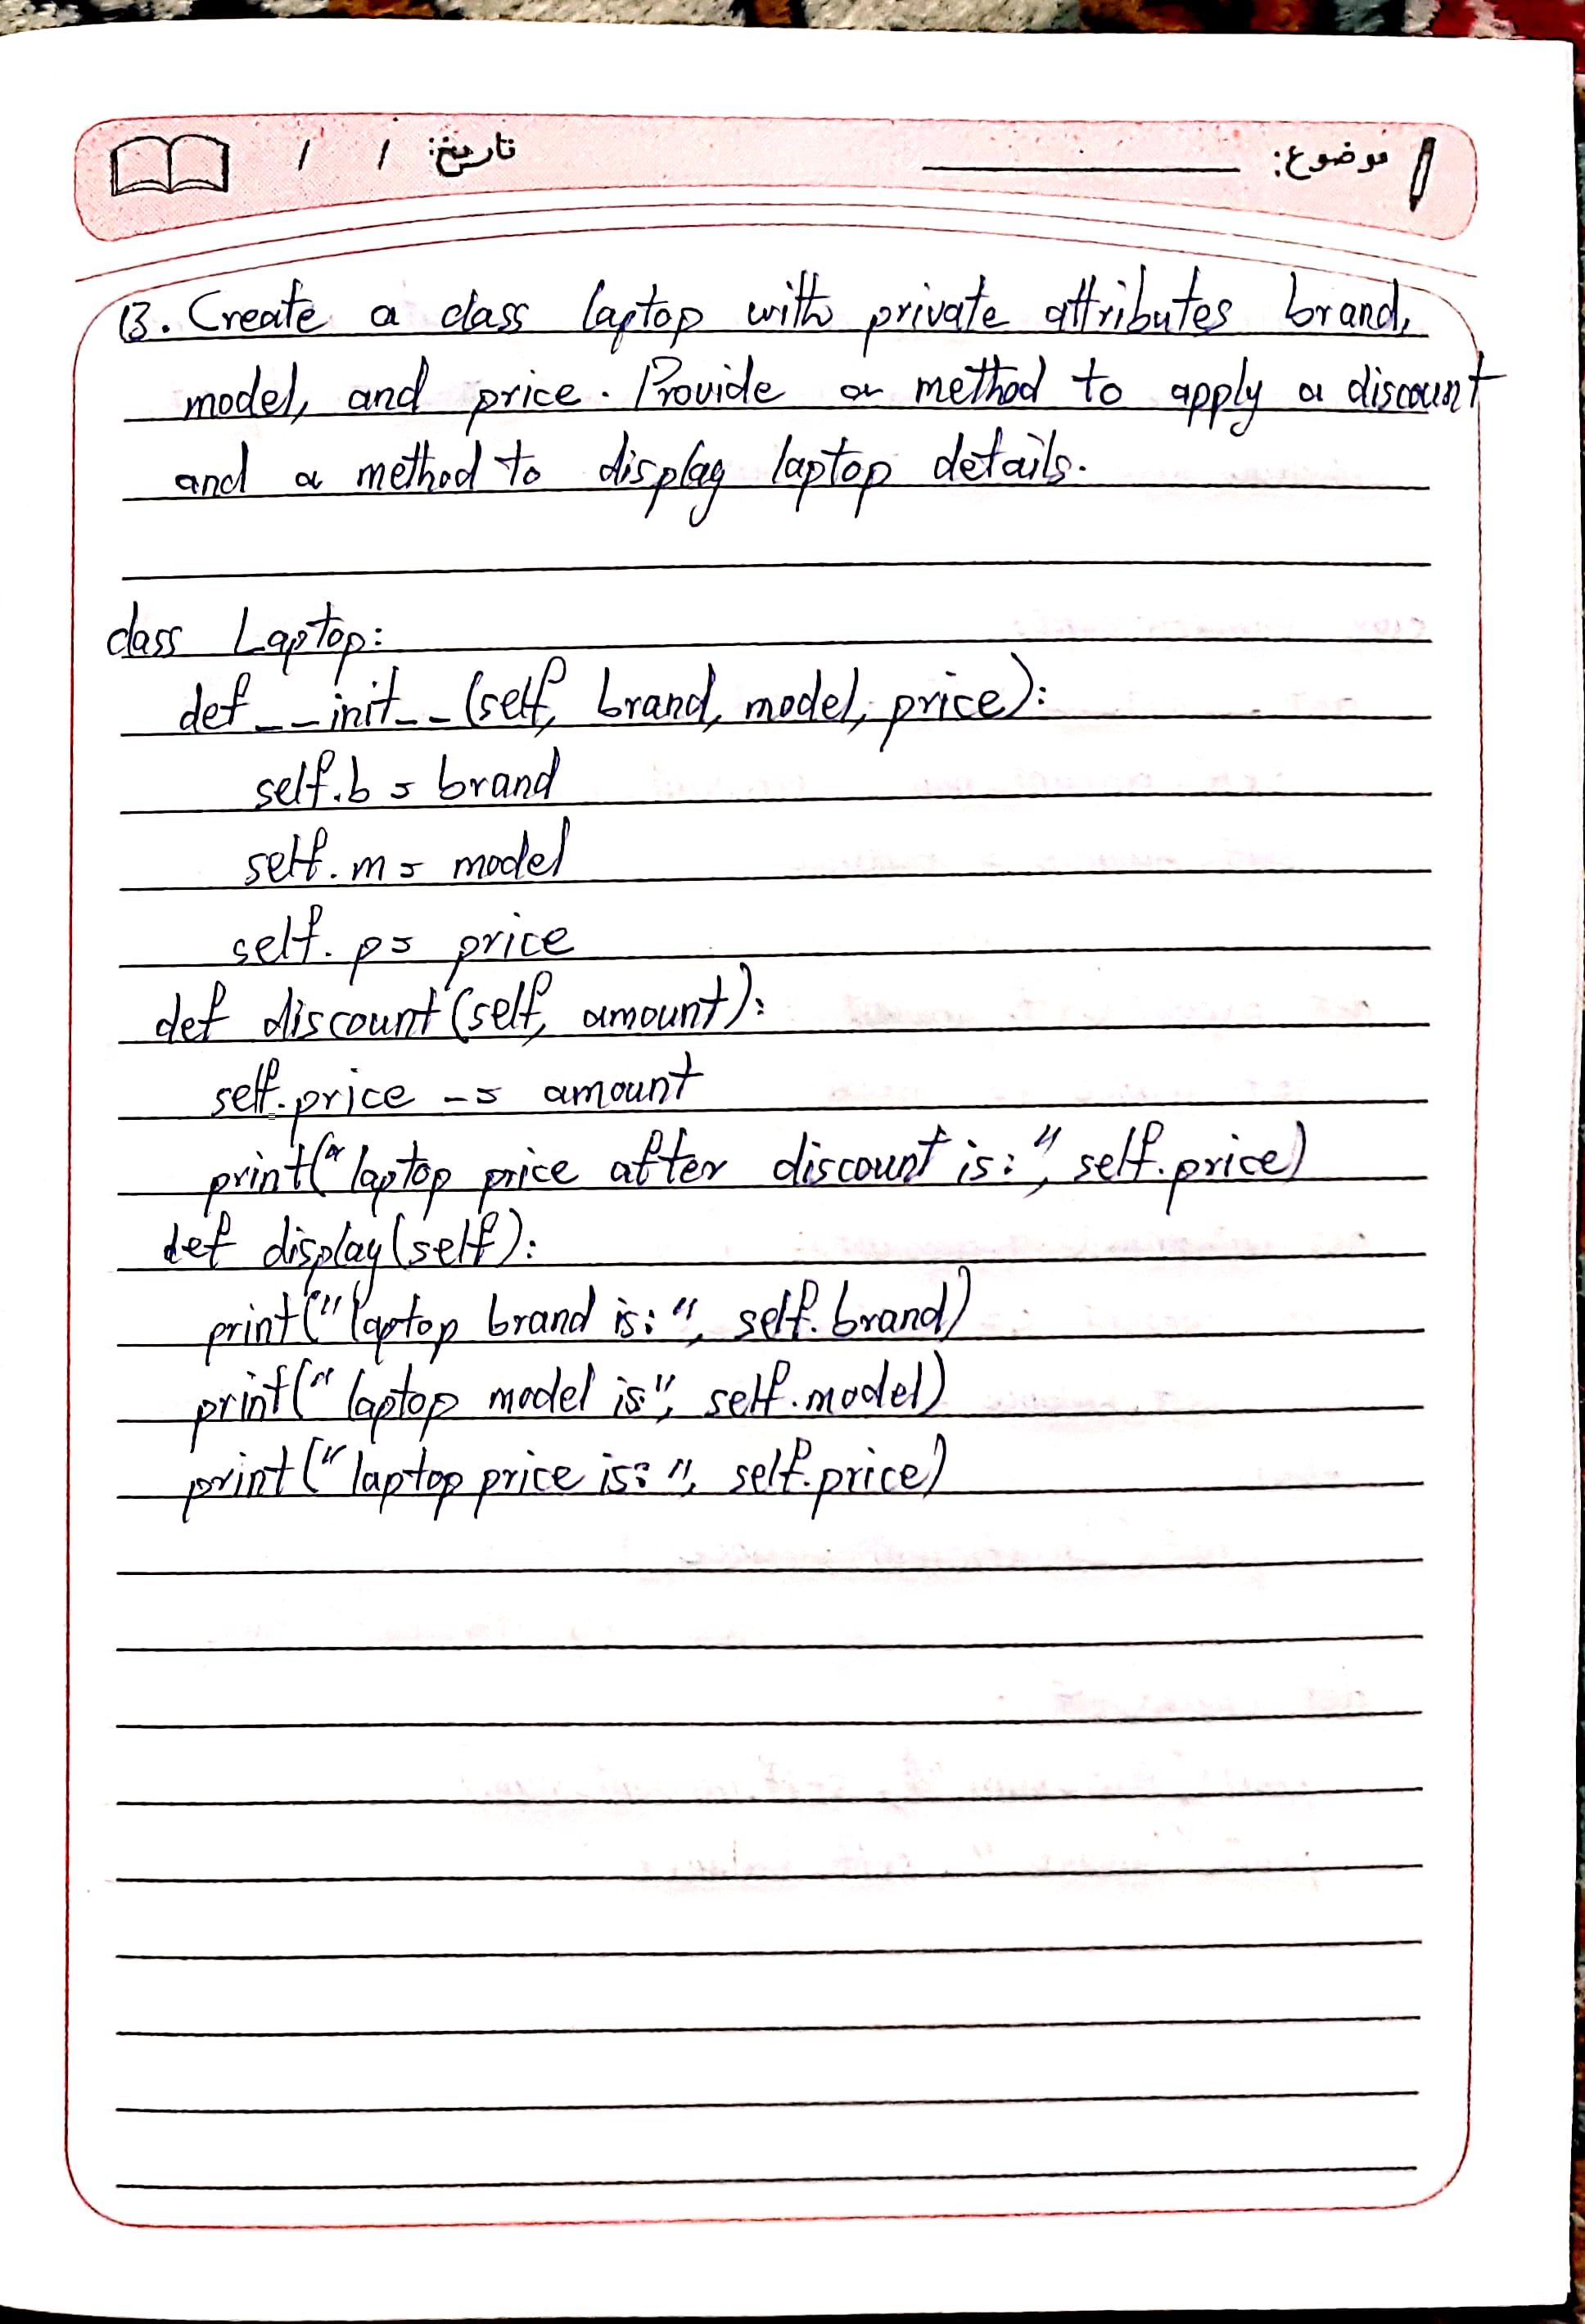 موضوع: تاریخ: / /
13. Create a class laptop with private attributes brand,
model, and price. Provide a method to apply a discount
and a method to display laptop details.
class Laptop:
def __init__(self, brand, model, price):
self.b = brand
self.m = model
self.p = price
def discount(self, amount):
self.price -= amount
print("laptop price after discount is:", self.price)
def display(self):
print("laptop brand is:", self.brand)
print("laptop model is:", self.model)
print("laptop price is:", self.price)